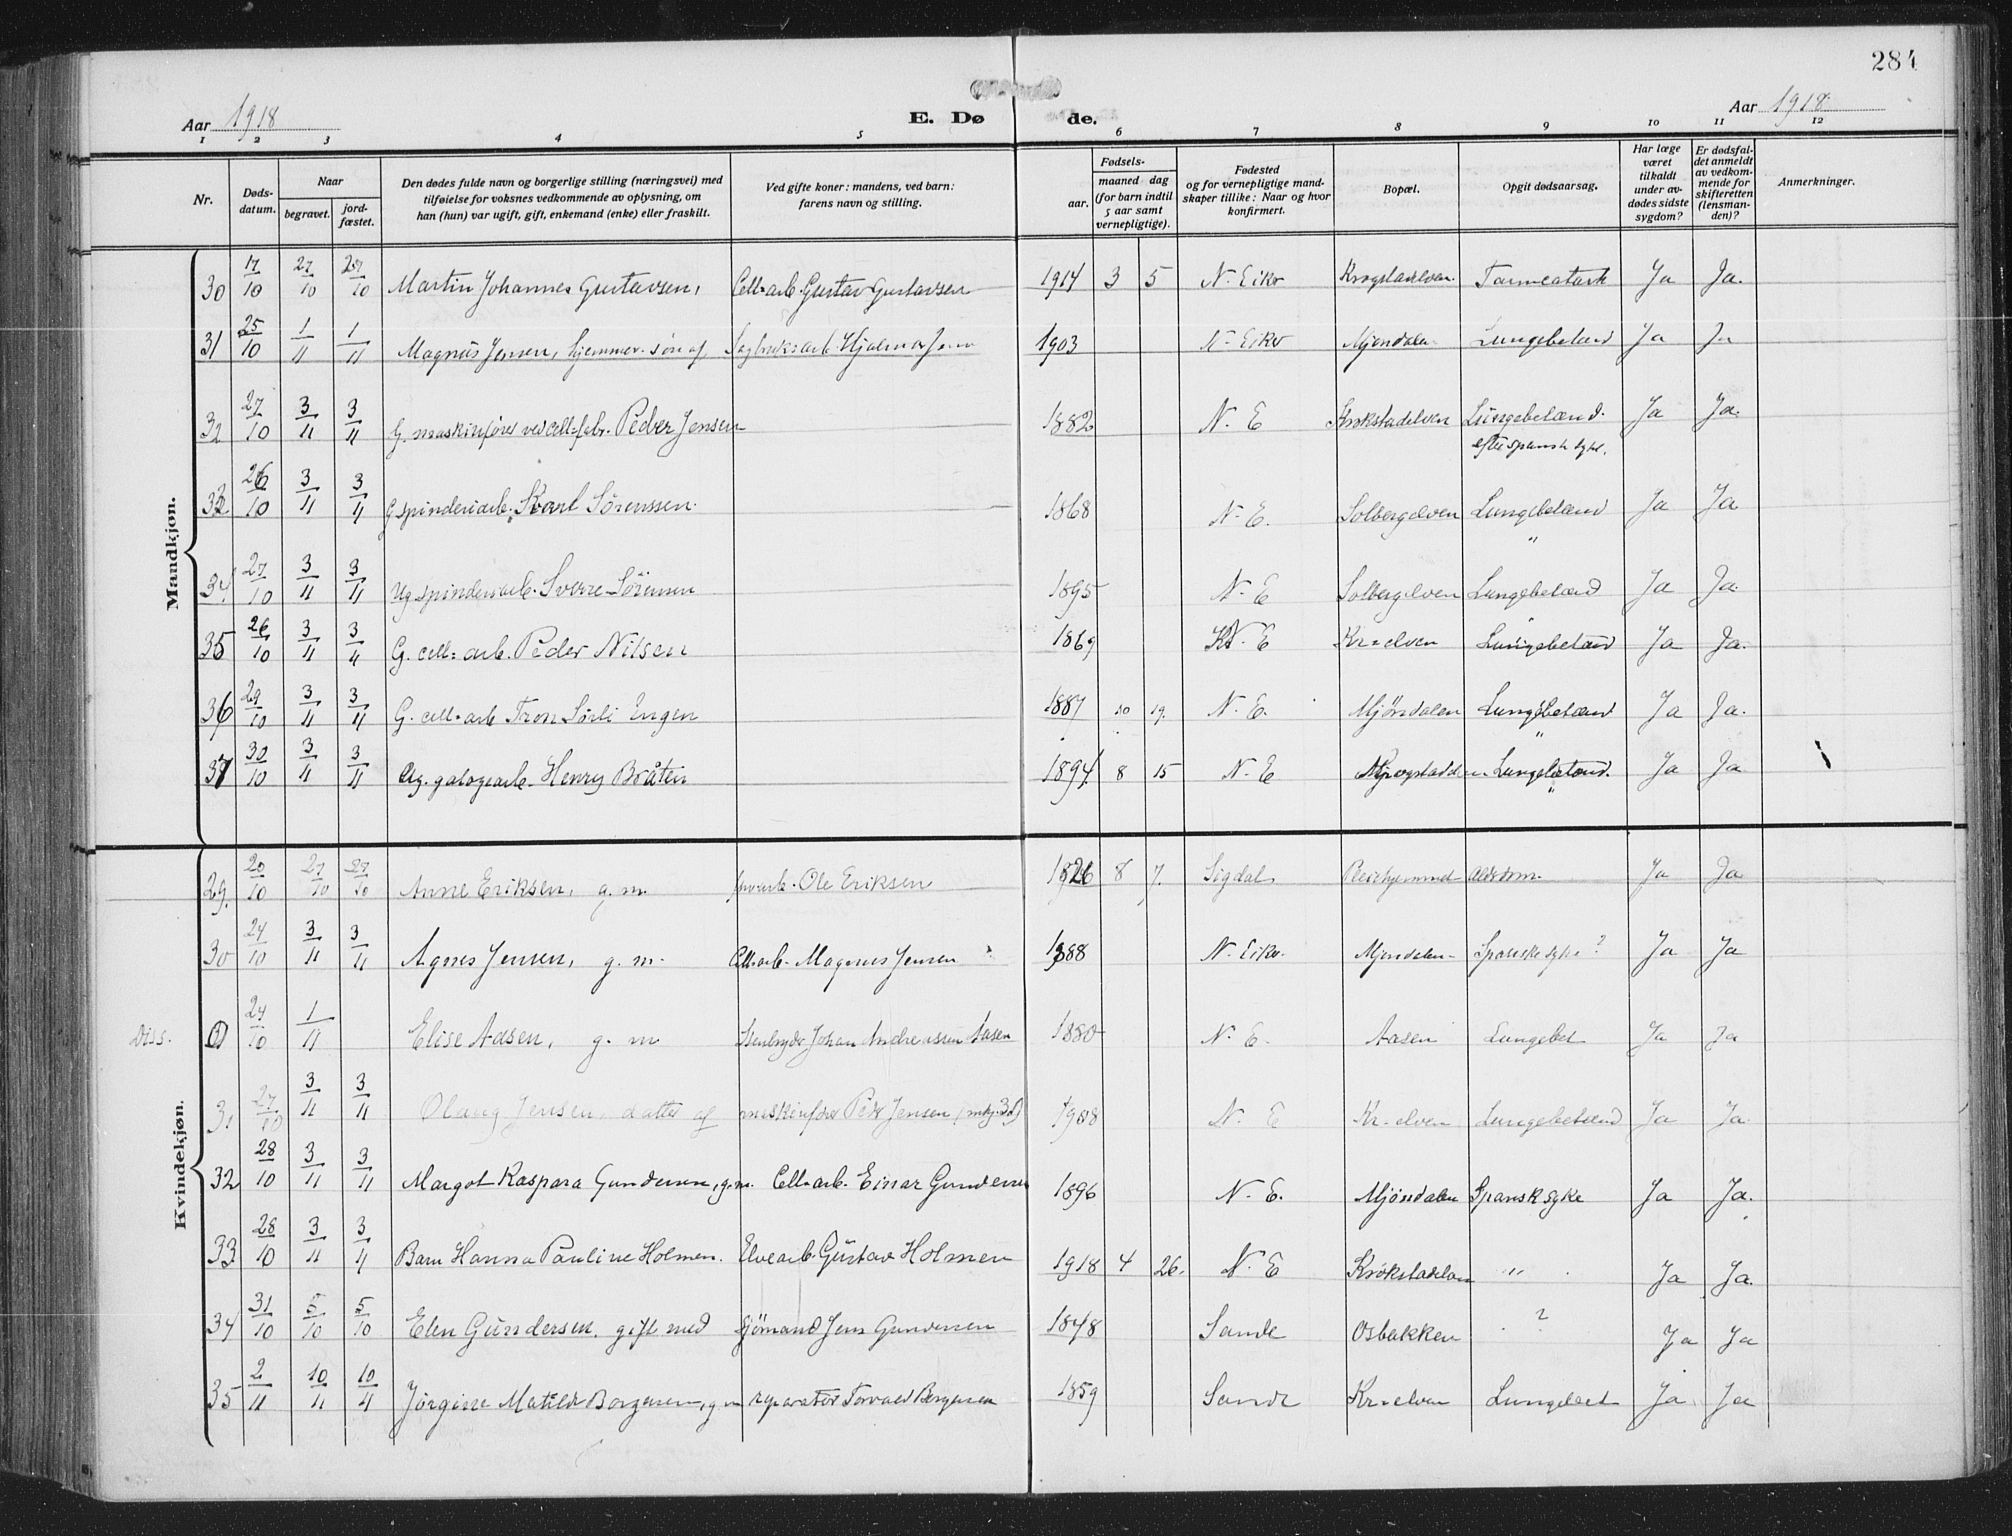 284
Aar 1918
E. Dø
de.
Aar 1918
1 2 3 4 5 6 7 8 9 10 11 12
Nr.
Døds-
datum.
Naar
begravet.
jord-
fæstet.
Den dødes fulde navn og borgerlige stilling (næringsvei) med
tilføielse for voksnes vedkommende av oplysning, om
han (hun) var ugift, gift, enkemand (enke) eller fraskilt.
Ved gifte koner: mandens, ved barn:
farens navn og stilling.
Fødsels-
aar.
maaned dag
(for barn indtil
5 aar samt
vernepligtige).
Fødested
og for vernepligtige mand-
skaper tillike: Naar og hvor
konfirmert.
Bopæl.
Opgit dødsaarsag.
Har læge
været
tilkaldt
under av-
dødes sidste
sygdom?
Er dødsfal-
det anmeldt
av vedkom-
mende for
skifteretten
(lensman-
den)?
Anmerkninger.
Mandkjøn.
30 17/10 27/10 27/10 Martin Johannes Gustavsen, Cell=arb. Gustav Gustavsen 1914 3 5 N. Eiker Krogstadelven Ja Ja.
31 25/10 1/11 1/11 Magnus Jensen, hjemmev. søn af Sagbruksarb. Hjalmar 1903 N. Eiker Mjøndalen Lungebetænd Ja Ja
32 27/10 3/11 3/11 G. maskinfører ved cell=fabr. Peder Jensen 1882 N. E Krokstadelven Lungebetænd.
efter spansk syke.
Ja Ja.
33 26/10 3/11 3/11 G spinderiarb. Karl Sørenssen. 1868 N. E. Solbergelven Lungebetænd Ja Ja
34 27/10 3/11 3/11 Ug spinderiarb. Sverre Sörensen 1895 N. E Solbergelven Lungebetænd Ja Ja.
35 26/10 3/11 3/11 G. cell=arb. Peder Nilsen 1869 N. E Kr=elven Lungebetænd Ja Ja.
36 29/10 3/11 3/11 G. cell=arb Tron Sørli Engen 1887 10 19. N. E. Mjöndalen Lungebetænd Ja Ja.
37 30/10 3/11 3/11 Ug. galogearb. Henry Bråten 1894 8 15 N. E Lungebetænd. Ja Ja
Kvindekjøn.
29. 20/10 27/10 27/10 Anne Eriksen, g. m. Ole Eriksen 1826 8 7. Sigdal Pleiehjemmet Alderdom. Ja Ja
30 24/10 3/11 3/11 Agnes Jensen, g. m. Cell=arb. Magnus Jensen 1888 N. Eiker. Mjøndalen Spanske syke? Ja Ja
Diss. 24/10 1/11 Elise Aasen, g. m Stenbryder Johan Andreassen Aasen 1880 N. E. Aasen Lungebet Ja Ja
31 27/10 3/11 3/11 Olaug Jensen, datter af maskinfører Peder Jensen (mkj. 32) 1908 N. E Kr=elven Lungebetænd Ja Ja
32 28/10 3/11 3/11 Margot Kaspara Gundersen, g.m. Cell=arb. Einar Gundersen 1896 N. E. Mjöndalen Spansk syke Ja Ja.
33 28/10 3/11 3/11 Barn Hanna Pauline Holmen. Elvearb. Gustav Holmen 1918 4 26. N. E Krokstadelven " Ja Ja.
34 31/10 5/10 5/10 Elen Gundersen, gift med sjömand Jens Gundersen 1848 Sande Osbakken ? Ja Ja
35 2/11 10/11 10/11 Jørgine Matilde Borgersen, g m reparatør Torvald Borgersen 1859 Sande Kr=elven Lungebet Ja Ja